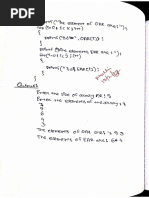 printf("The element of ORR one:");
for(i=0;i<x;i++)
{
printf("%d\n", ORR[i]);
}
printf("The elements ERR one:");
for(i=0;i<y;i++)
{
printf("%d", ERR[i]);
}
Output:-
Enter the size of array ARR: 5
Enter the elements of array: 7
9
6
4
3
The elements of ORR ones: 7 9
The elements of ERR ones: 6 4